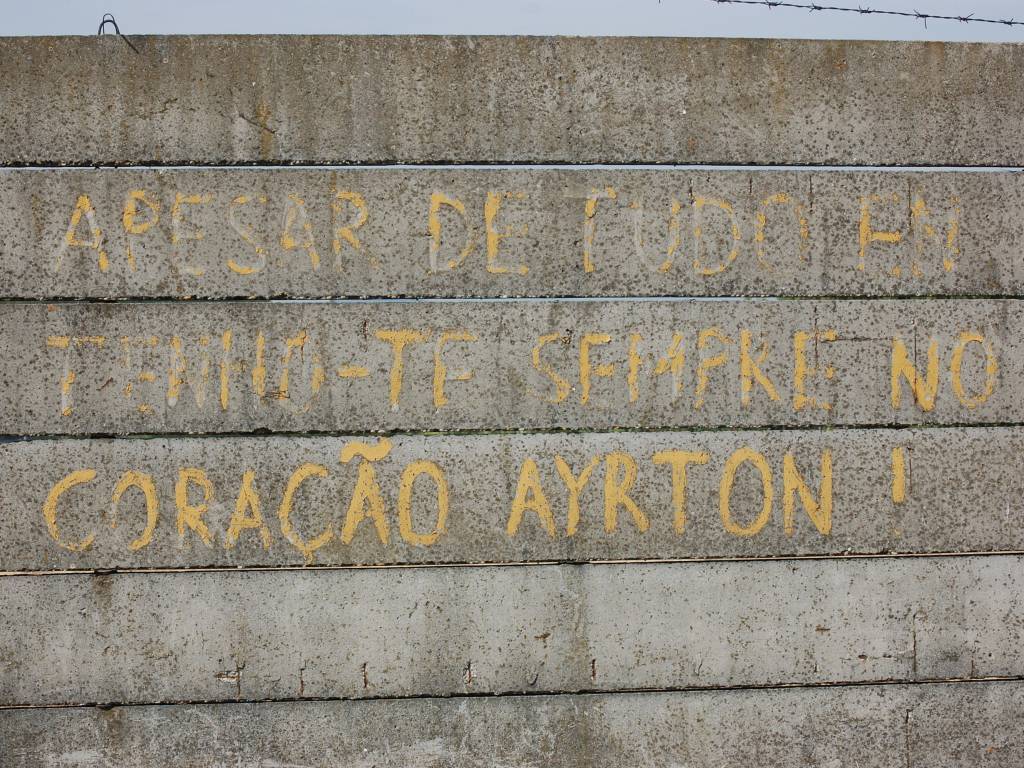 APESAR DE TUDO EN
TENHO-TE SEMPRE NO
CORAÇÃO AYRTON !